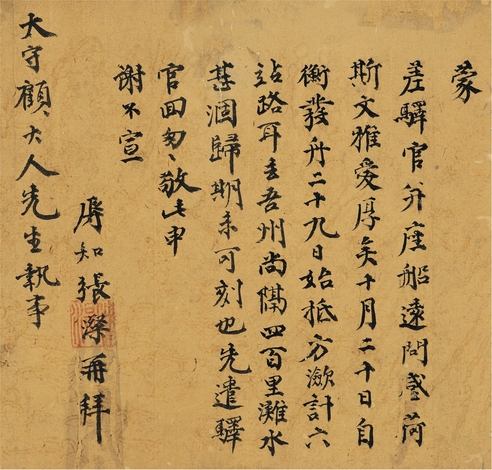 蒙
差驛官并座船遠問感荷
斯文雅愛厚矣十月二十日自
衡發舟二十九日始抵方瀫計六
站路耳至吾州尚隔四百里灘水
甚涸歸期未可刻也先遣驛
官回匆〻敬此申
謝不宣
辱知張 再拜
大守顧〻大人先生執事